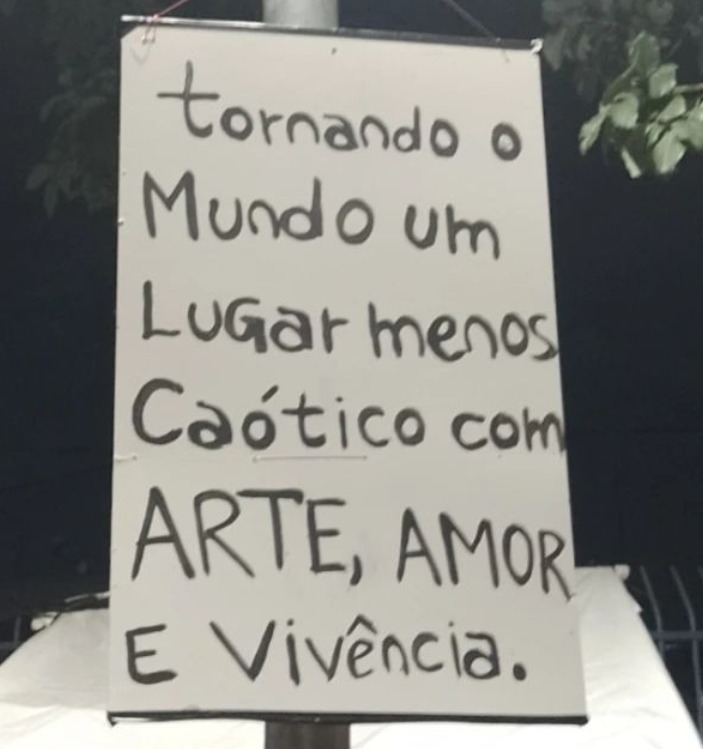 tornando o
Mundo um
LUGar menos
Caótico com
ARTE, AMOR
E Vivência.